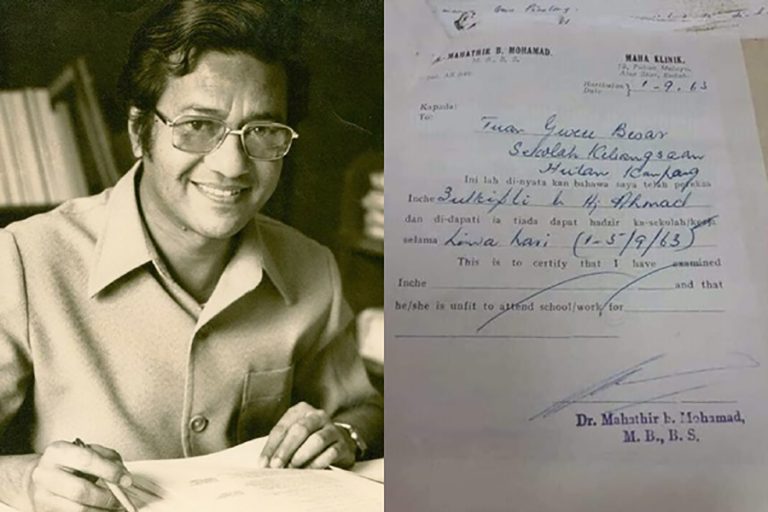 MAHATHIR B. MOHAMAD.
M. B., B. S.
MAHA KLINIK.
Alor Star, Kedah.
Haribulan
Date } 1-9. 63
Kapada:
To:
Tuan Guru Besar
Sekolah Kebangsaan
Hutan Kampang
Ini lah di-nyata kan bahawa saya telah pereksa
Inche Zulkifli b Hj Ahmad
dan di-dapati ia tiada dapat hadzir ka-sekolah/kerja
selama Lima hari (1-5/9/63)
This is to certify that I have examined
Inche and that
he/she is unfit to attend school/work for
Dr. Mahathir b. Mohamad,
M. B., B. S.